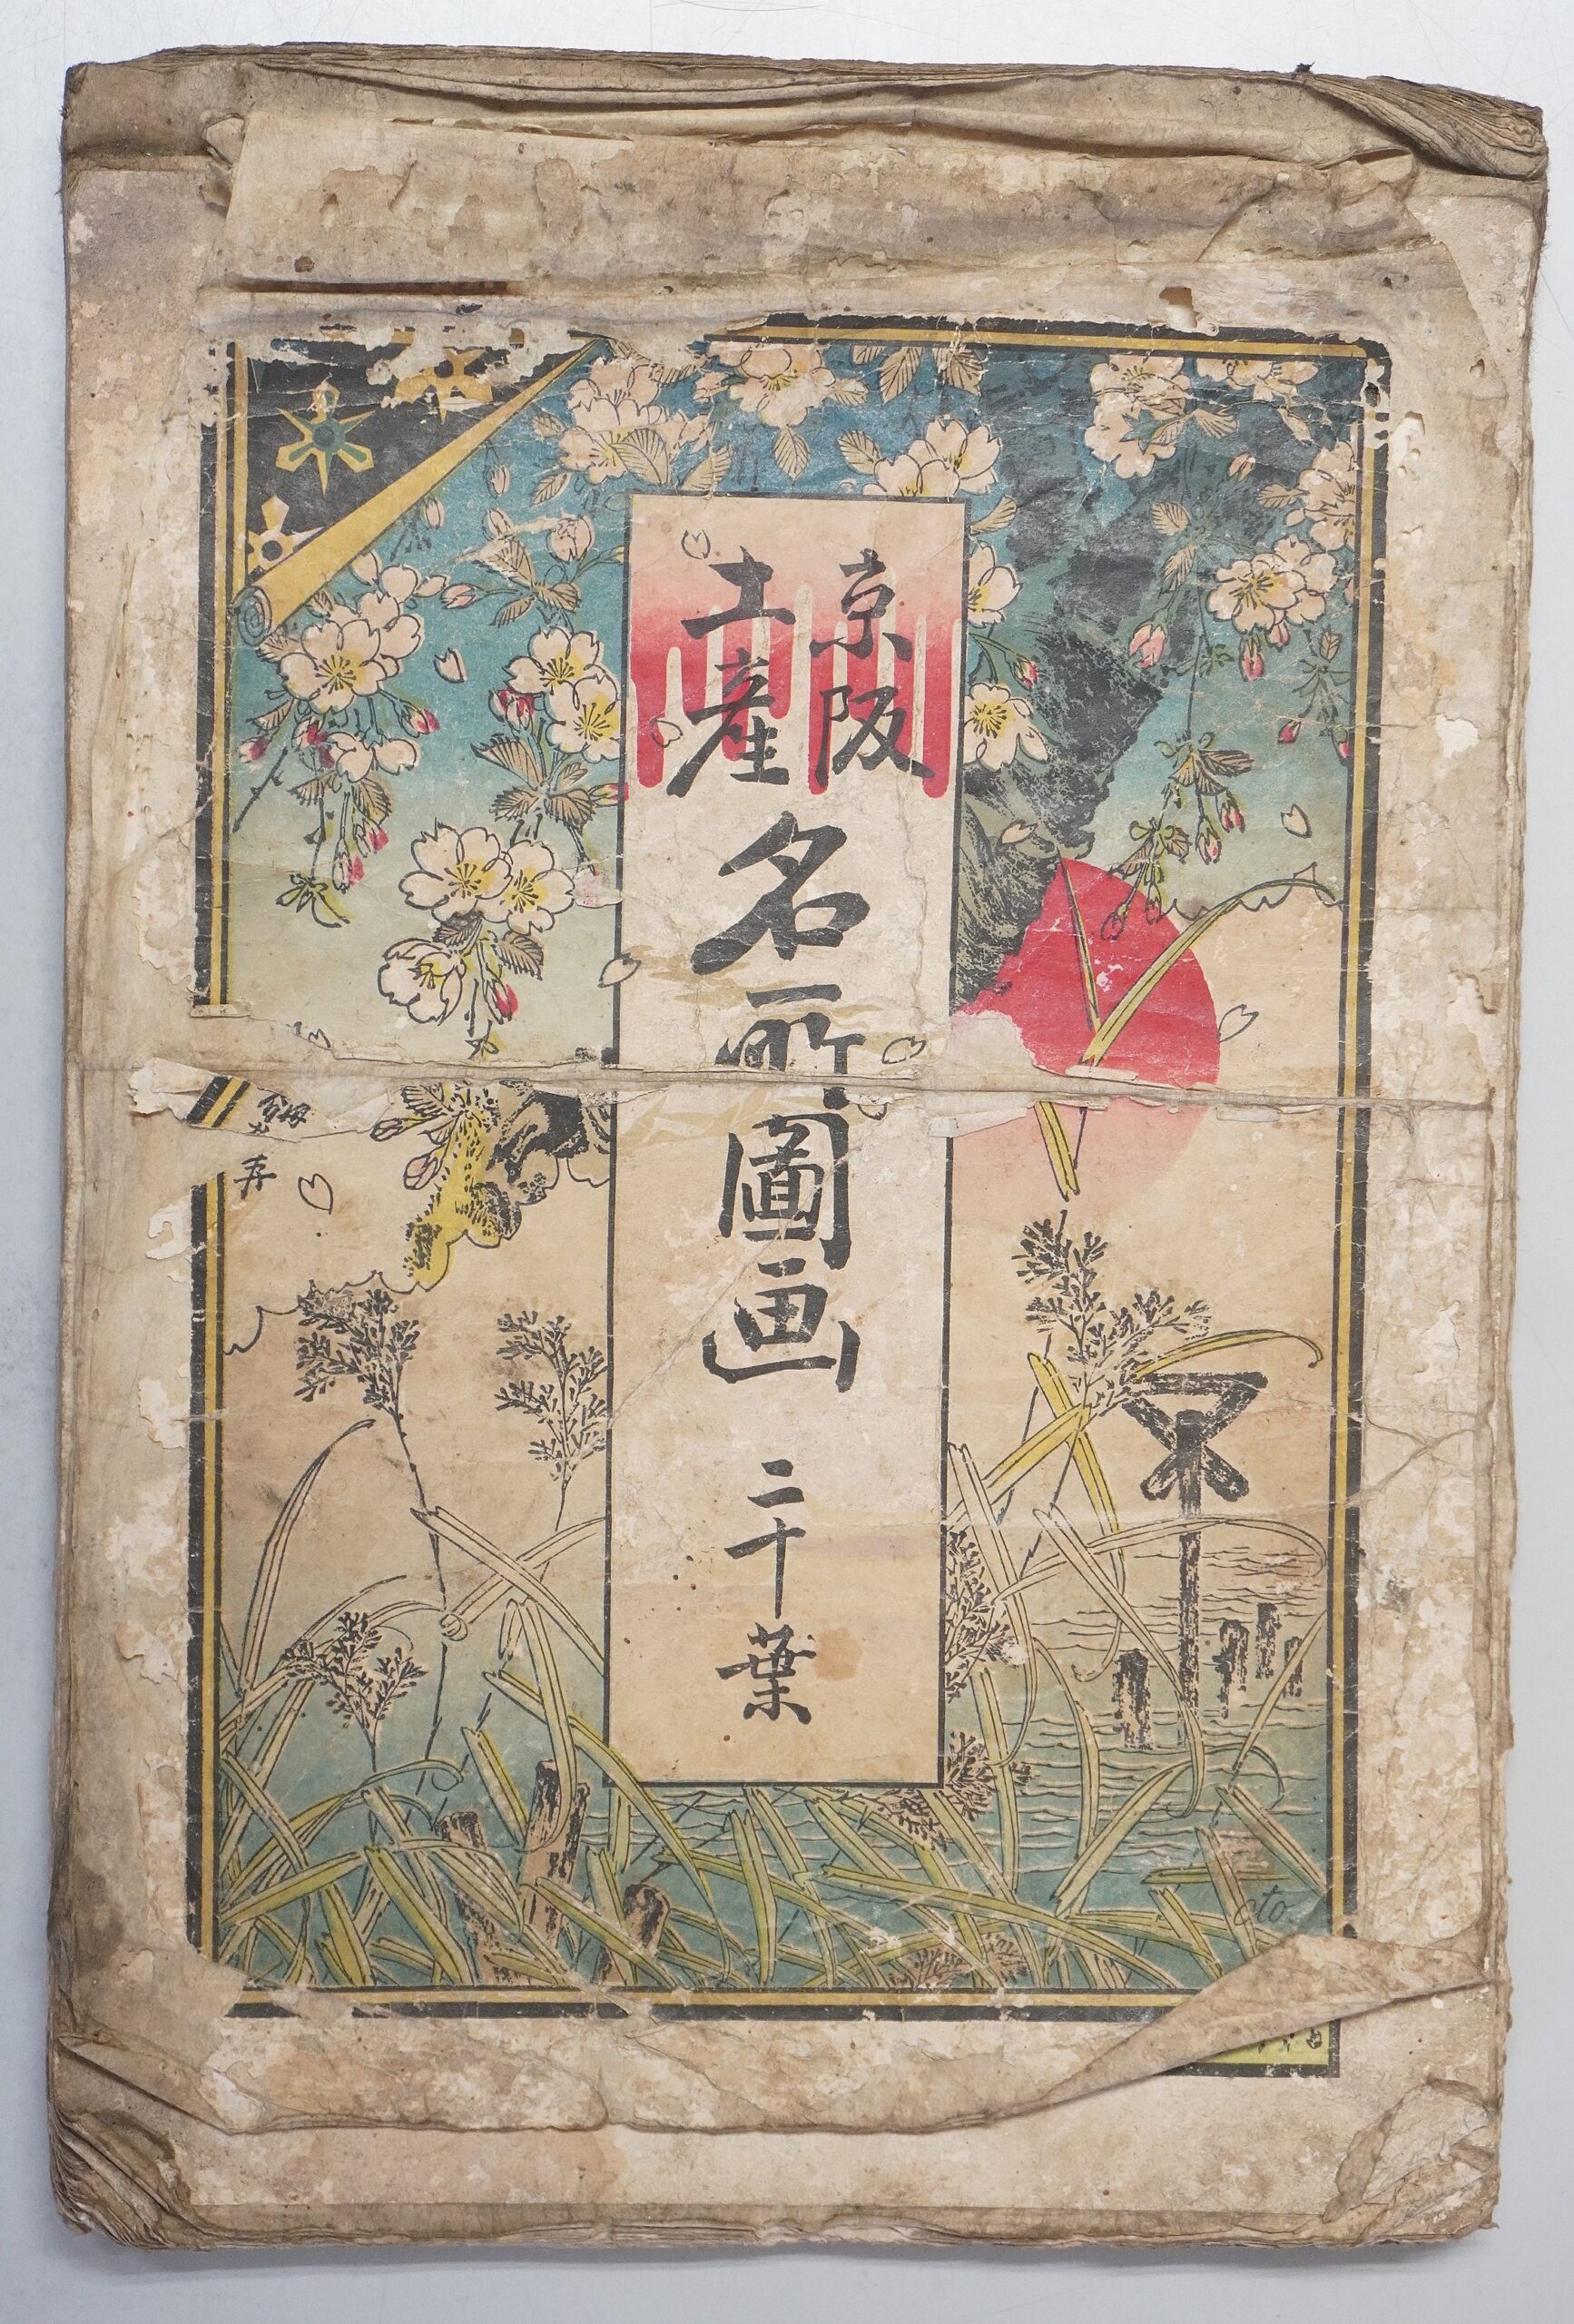 京阪
土産
名所圖画
二十葉
oto.